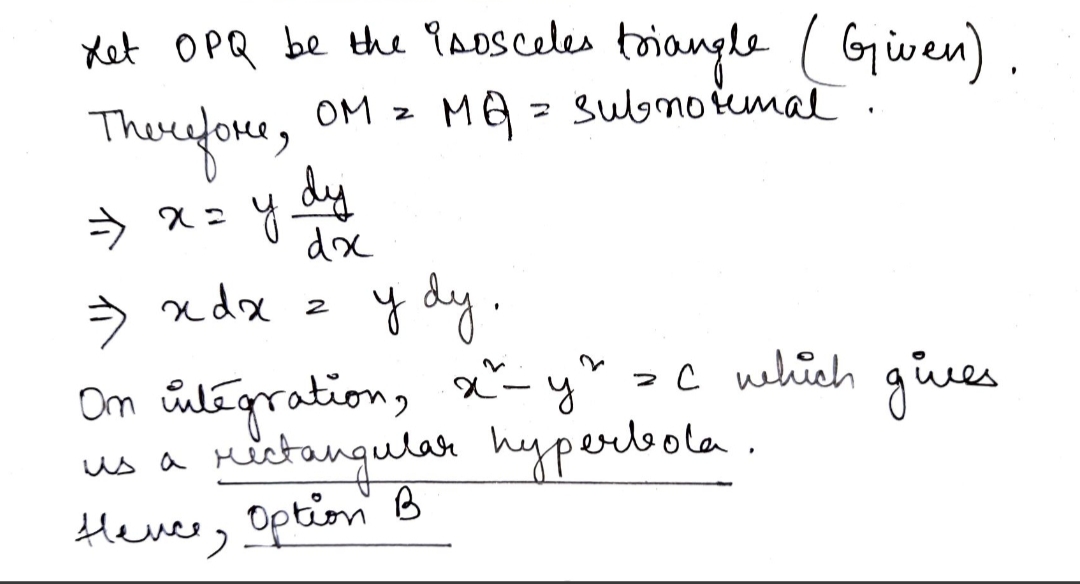 Let OPQ be the isosceles triangle (Given).
Therefore, OM = MQ = subnormal.
⇒ x = y dy/dx
⇒ xdx = y dy.
On integration, x² - y² = C which gives
us a rectangular hyperbola.
Hence, Option B